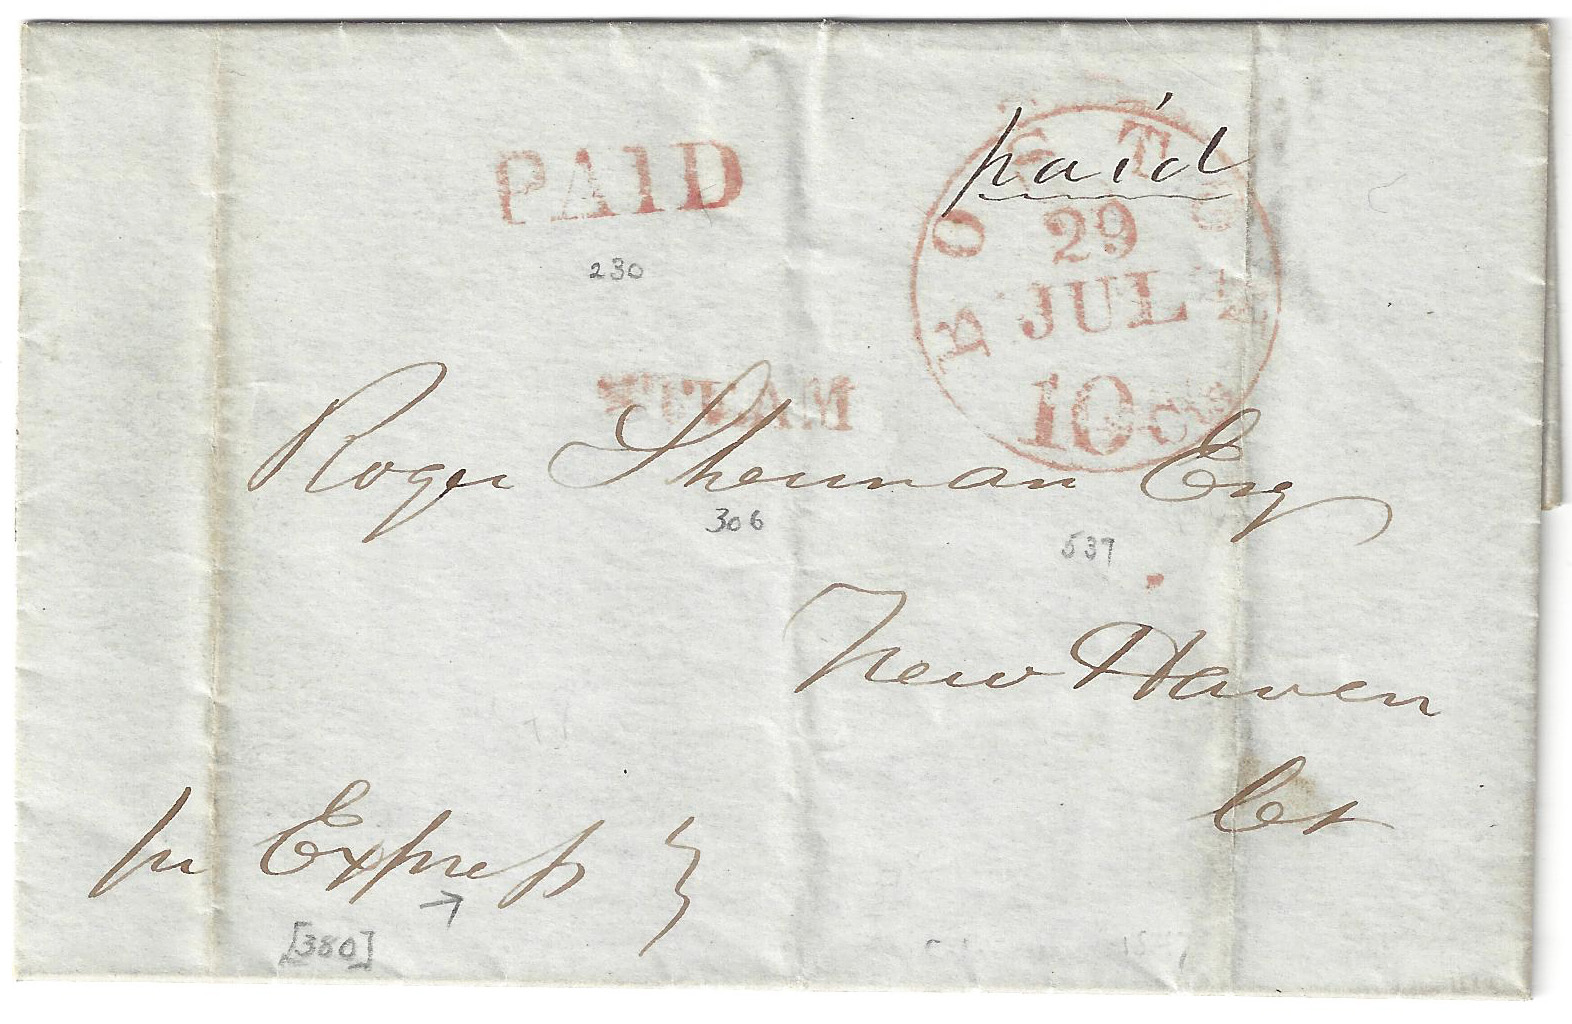 PAID
paid
BOSTON
29
JUL
10 cts
230
STEAM
Roger Sherman Esq
306
537
New Haven
Ct
pr Express
[380]